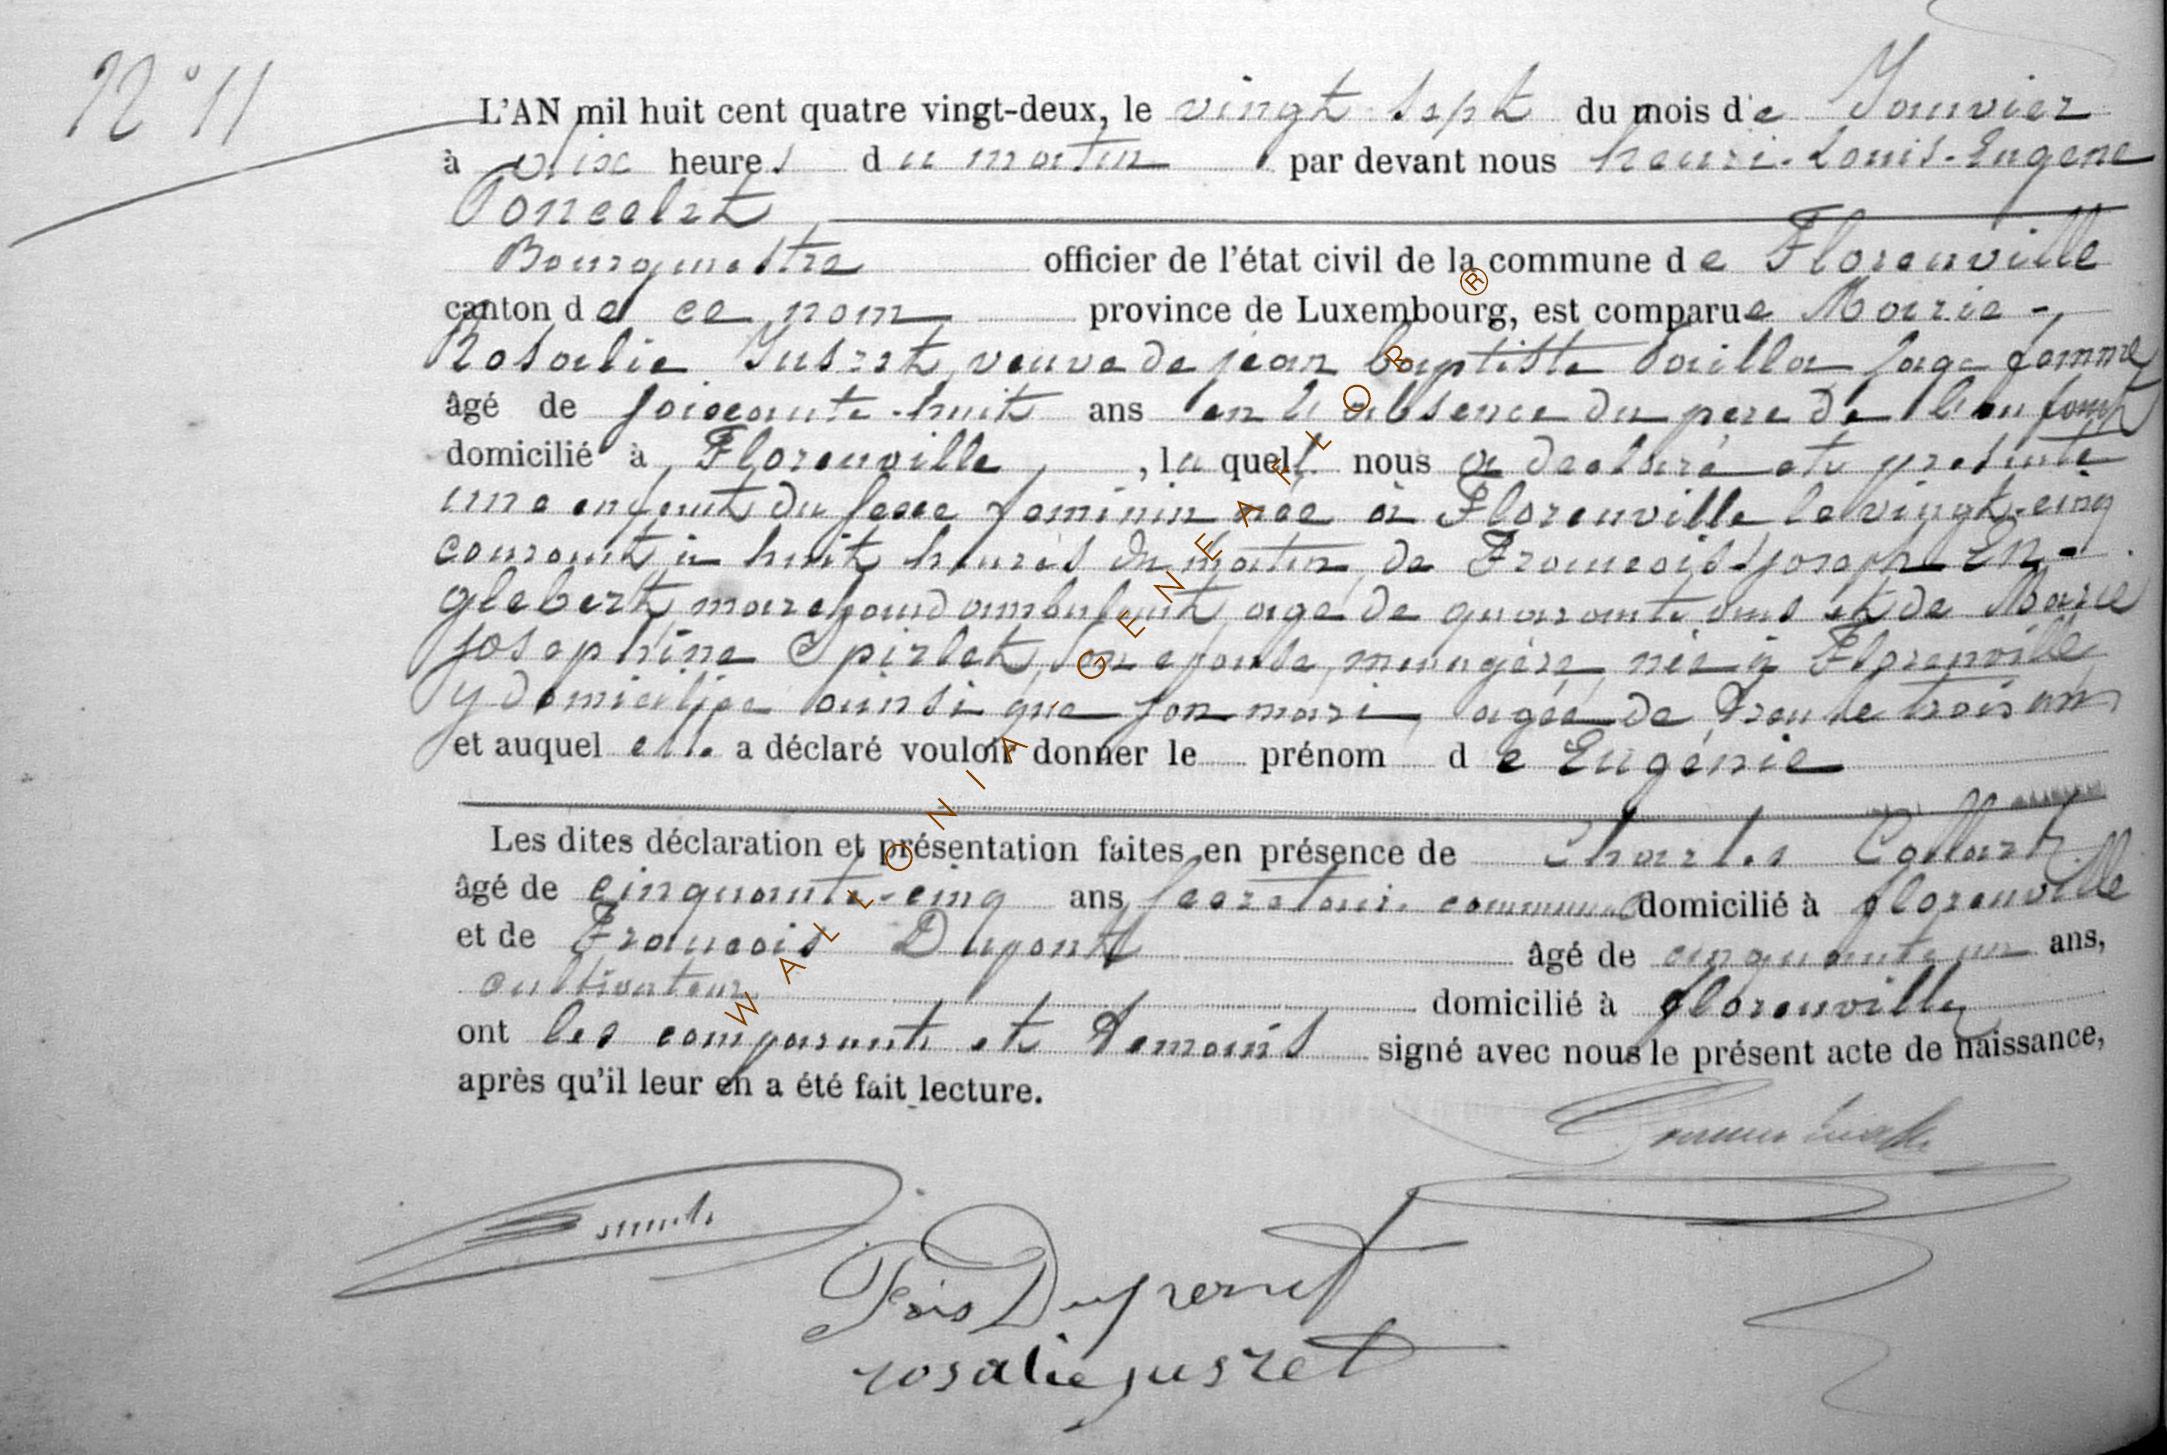 N° 11
L'AN mil huit cent quatre vingt-deux, le vingt sept du mois de Janvier
à dix heures du matin par devant nous henri-Louis-Eugene
Poncelet
Bourgmestre officier de l'état civil de la commune de Florenville
canton de ce nom province de Luxembourg, est comparue Marie-
Rosalie Jusret, veuve de jean baptiste sage femme
âgé de soixante-huit ans en l'absence du père de l'enfant
domicilié à Florenville, laquell. nous a déclaré et présenté
une enfant du sexe feminin née à Florenville le vingt-cinq
courant à huit heures du matin, de Francois-joseph En-
glebert, marchand ambulant, agé de quarante ans et de Marie
josephine Spirlet, son epouse, menagère, née à Florenville
y domiciliée ainsi que son mari, agée de trente trois ans
et auquel elle a déclaré vouloir donner le prénom de Eugénie
Les dites déclaration et présentation faites en présence de Charles Collart
âgé de cinquante-cinq ans, secretaire communal domicilié à florenville
et de Francois Dupont âgé de cinquante un ans,
cultivateur domicilié à florenville
ont les comparants et temoins signé avec nous le présent acte de naissance,
après qu'il leur en a été fait lecture.
Fois Dupont
rosalie jusret
WALLONIA-GENEAFLOR ®